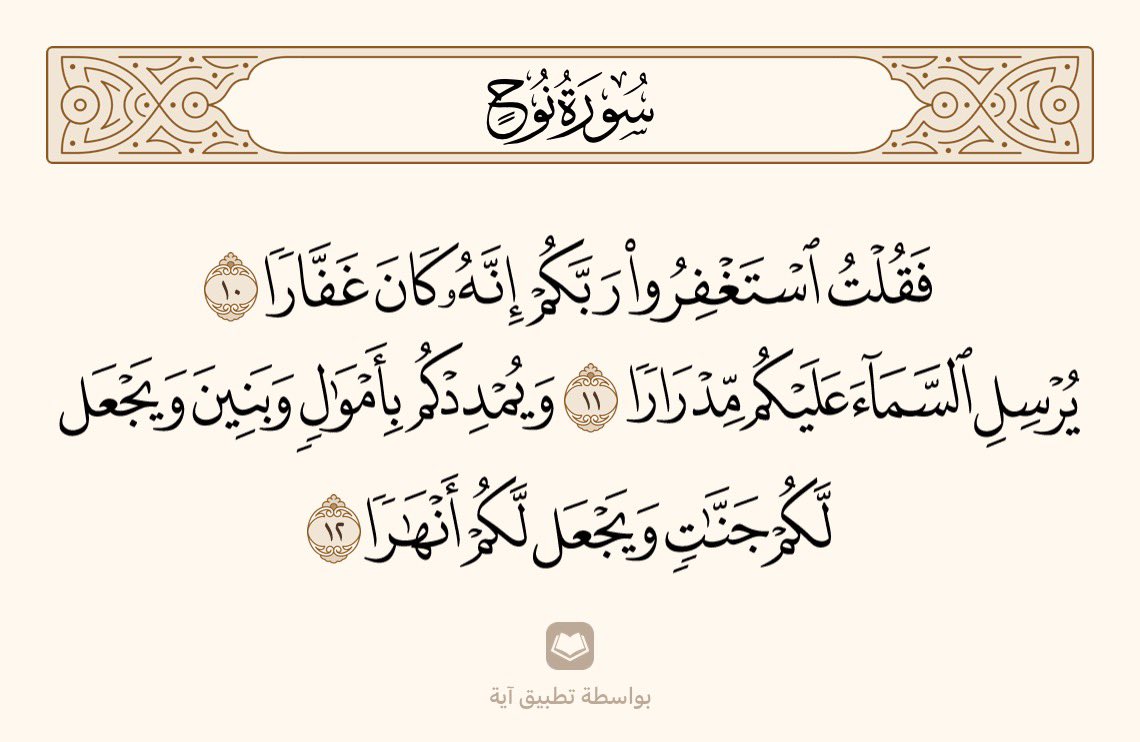 سُورَةُ نُوحٍ
فَقُلْتُ ٱسْتَغْفِرُوا۟ رَبَّكُمْ إِنَّهُۥ كَانَ غَفَّارًا ١٠
يُرْسِلِ ٱلسَّمَآءَ عَلَيْكُم مِّدْرَارًا ١١ وَيُمْدِدْكُم بِأَمْوَٰلٍ وَبَنِينَ وَيَجْعَل
لَّكُمْ جَنَّٰتٍ وَيَجْعَل لَّكُمْ أَنْهَٰرًا ١٢
بواسطة تطبيق آية